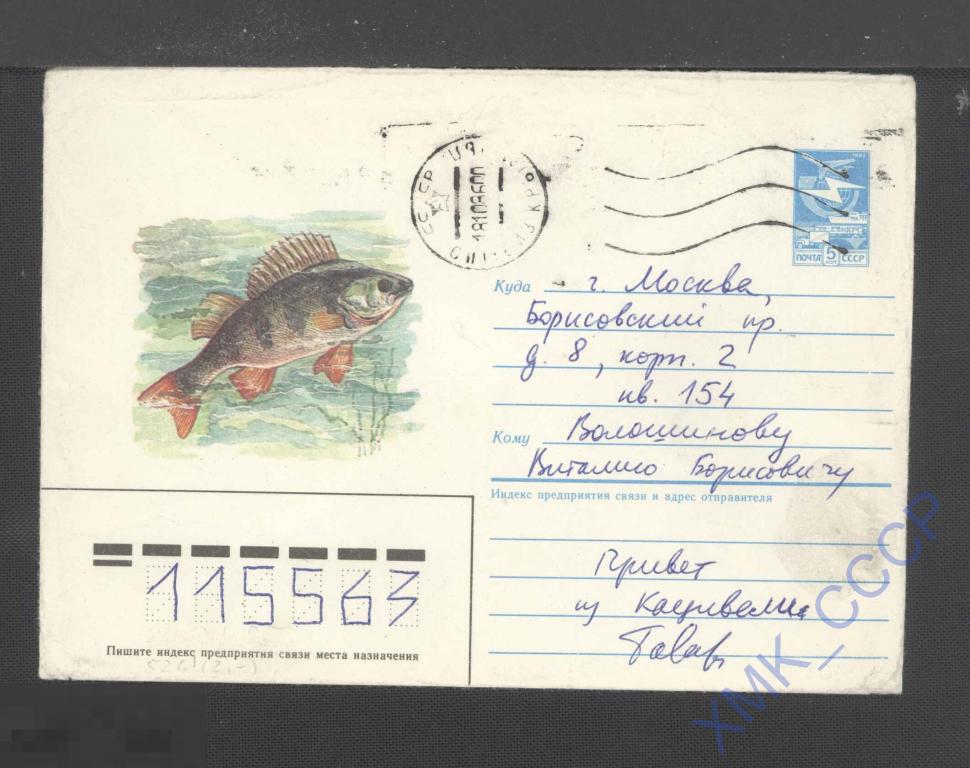 1983
ПОЧТА 5 КОП СССР
18108600
Куда г. Москва,
Борисовский пр.
д. 8, корп. 2
кв. 154
Кому Волошинову
Виталию Борисовичу
Индекс предприятия связи и адрес отправителя
Привет
из Кацивели
115563
Пишите индекс предприятия связи места назначения
ХМК_СССР